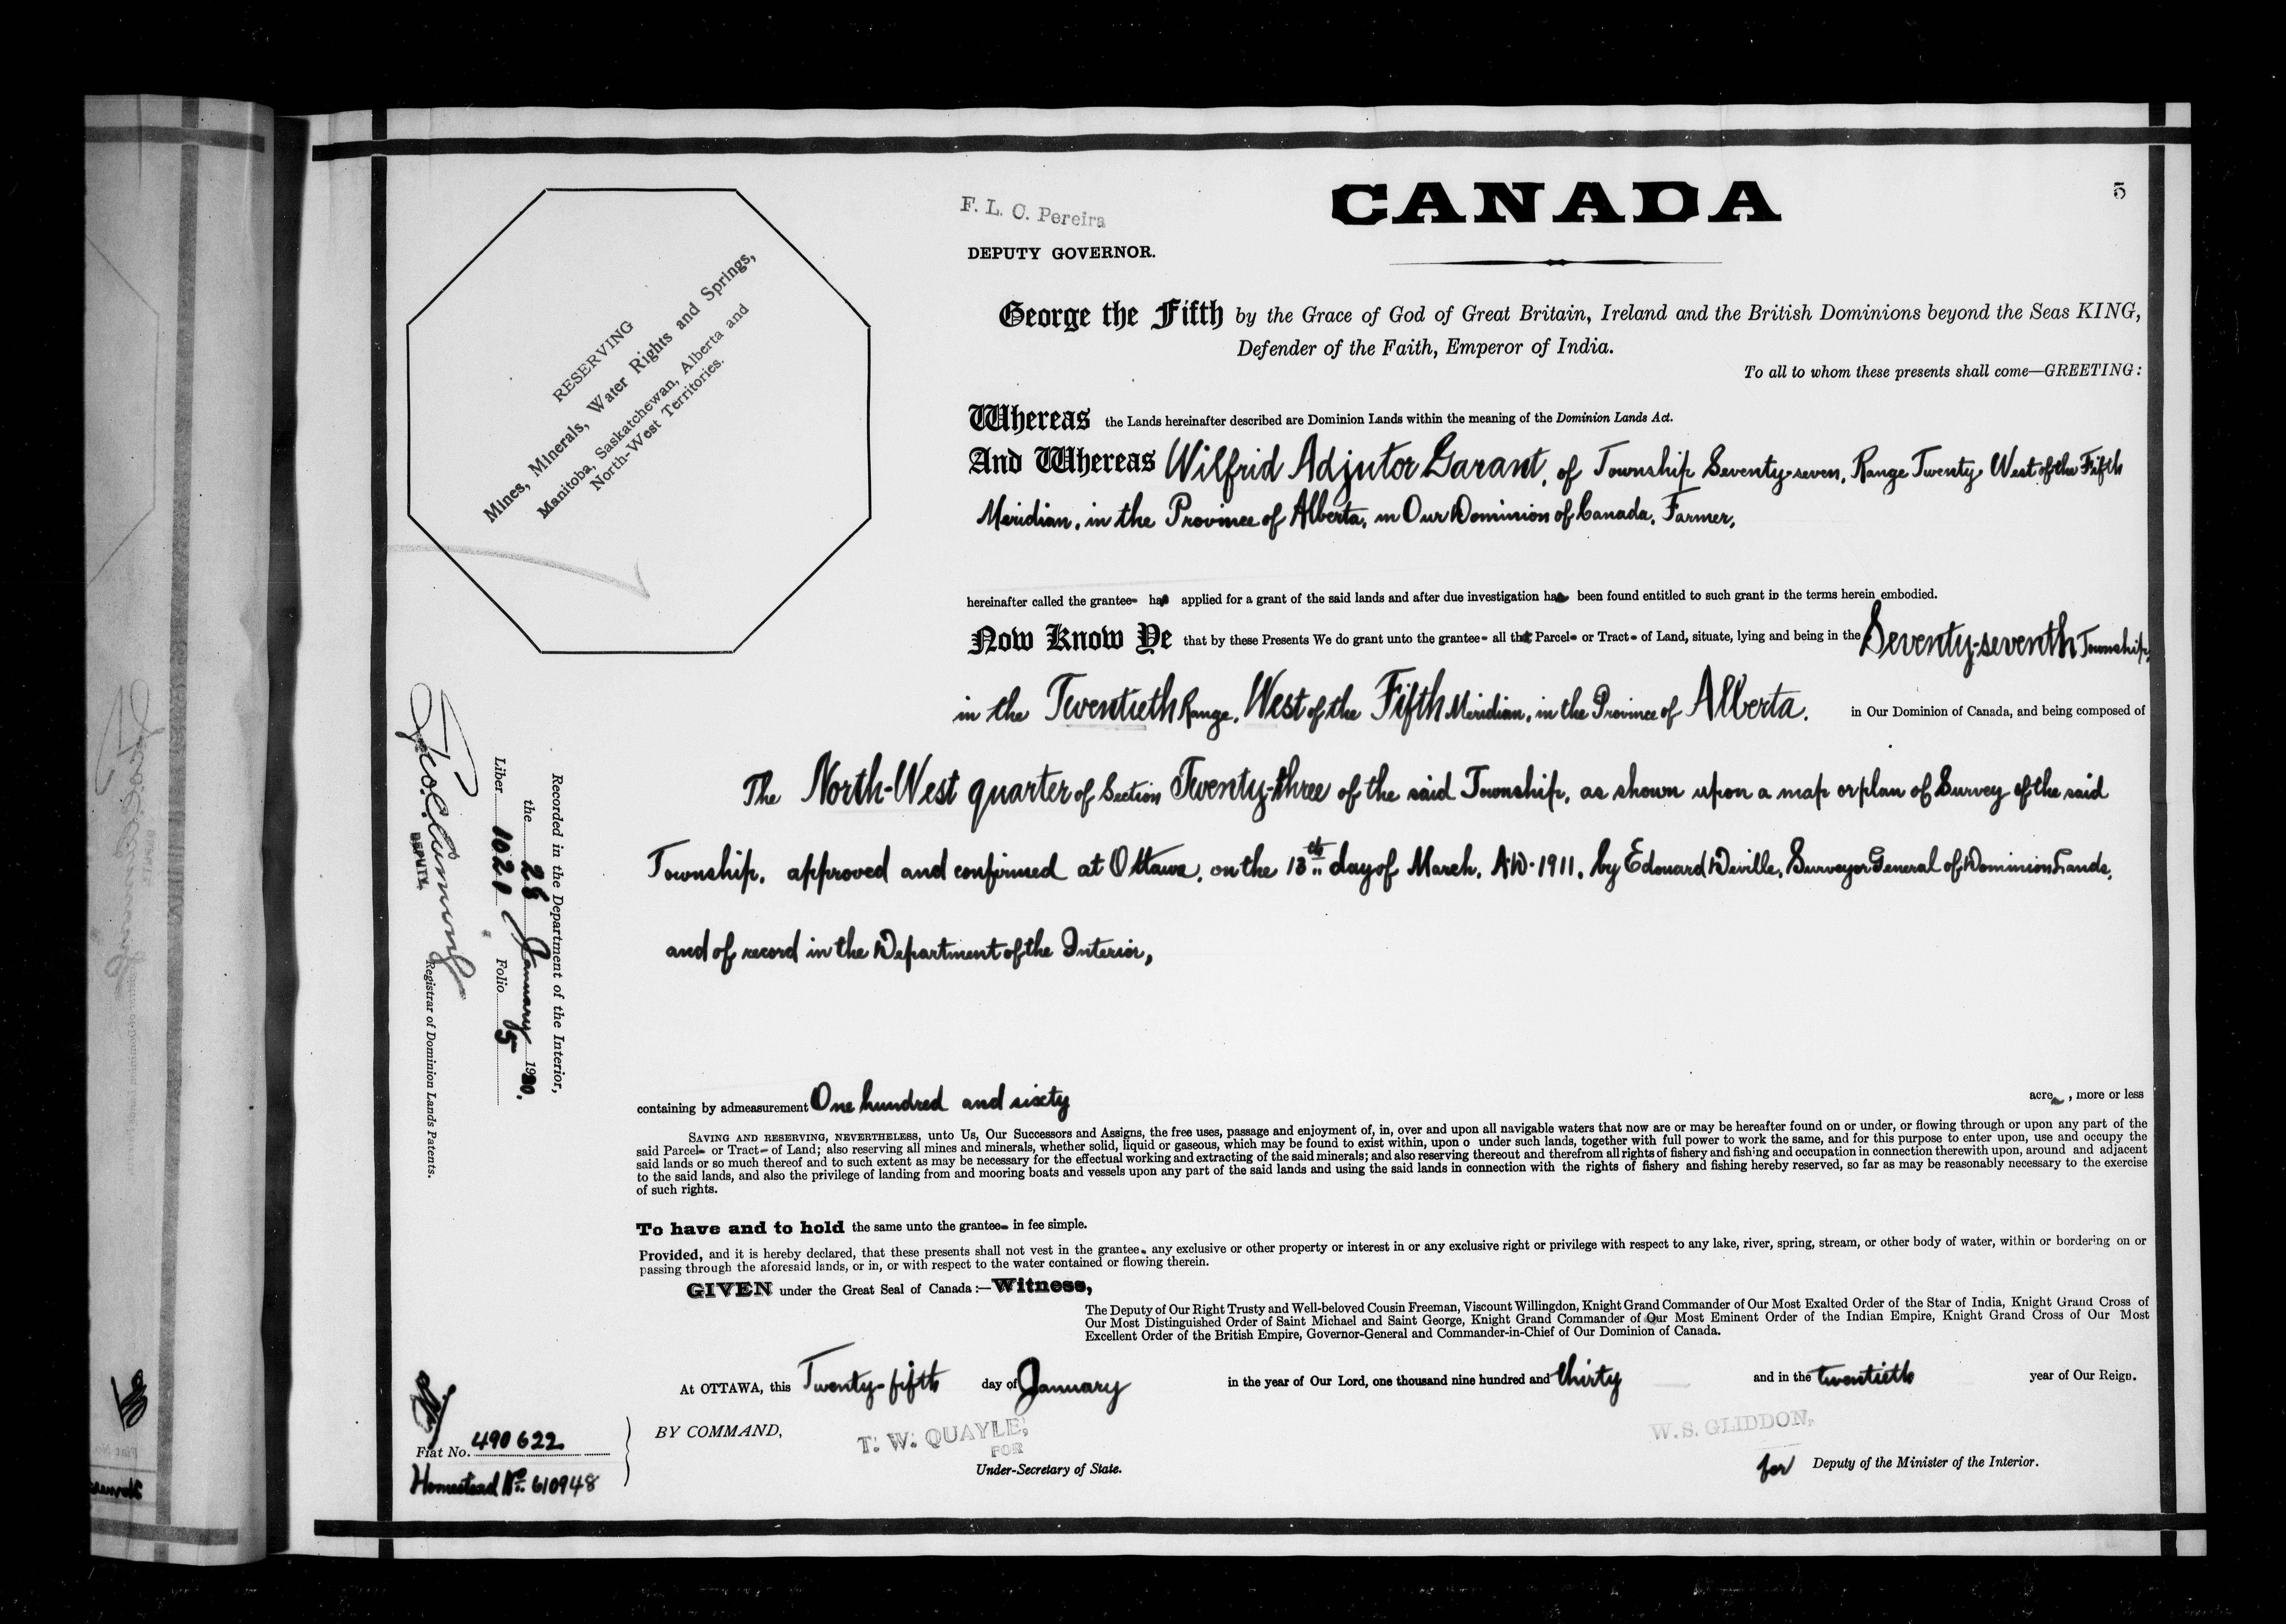 5
CANADA
F. L. C. Pereira
DEPUTY GOVERNOR.
RESERVING
Mines, Minerals, Water Rights and Springs,
Manitoba, Saskatchewan, Alberta and
North-West Territories.
George the Fifth by the Grace of God of Great Britain, Ireland and the British Dominions beyond the Seas KING,
Defender of the Faith, Emperor of India.
To all to whom these presents shall come—GREETING:
Whereas the Lands hereinafter described are Dominion Lands within the meaning of the Dominion Lands Act.
And Whereas Wilfrid Adjutor Garant, of Township Seventy-seven, Range Twenty West of the Fifth
Meridian, in the Province of Alberta, in Our Dominion of Canada, Farmer,
hereinafter called the grantee has applied for a grant of the said lands and after due investigation has been found entitled to such grant in the terms herein embodied.
Now Know Ye that by these Presents We do grant unto the grantee all that Parcel or Tract of Land, situate, lying and being in the Seventy-seventh Township,
in the Twentieth Range, West of the Fifth Meridian, in the Province of Alberta, in Our Dominion of Canada, and being composed of
The North-West quarter of Section Twenty-three of the said Township, as shown upon a map or plan of Survey of the said
Township, approved and confirmed at Ottawa, on the 13th day of March, A.D. 1911, by Edouard Deville, Surveyor General of Dominion Lands,
and of record in the Department of the Interior,
containing by admeasurement One hundred and sixty acres, more or less
SAVING AND RESERVING, NEVERTHELESS, unto Us, Our Successors and Assigns, the free uses, passage and enjoyment of, in, over and upon all navigable waters that now are or may be hereafter found on or under, or flowing through or upon any part of the
said Parcel or Tract of Land; also reserving all mines and minerals, whether solid, liquid or gaseous, which may be found to exist within, upon o under such lands, together with full power to work the same, and for this purpose to enter upon, use and occupy the
said lands or so much thereof and to such extent as may be necessary for the effectual working and extracting of the said minerals; and also reserving thereout and therefrom all rights of fishery and fishing and occupation in connection therewith upon, around and adjacent
to the said lands, and also the privilege of landing from and mooring boats and vessels upon any part of the said lands and using the said lands in connection with the rights of fishery and fishing hereby reserved, so far as may be reasonably necessary to the exercise
of such rights.
To have and to hold the same unto the grantee in fee simple.
Provided, and it is hereby declared, that these presents shall not vest in the grantee any exclusive or other property or interest in or any exclusive right or privilege with respect to any lake, river, spring, stream, or other body of water, within or bordering on or
passing through the aforesaid lands, or in, or with respect to the water contained or flowing therein.
GIVEN under the Great Seal of Canada:—Witness,
The Deputy of Our Right Trusty and Well-beloved Cousin Freeman, Viscount Willingdon, Knight Grand Commander of Our Most Exalted Order of the Star of India, Knight Grand Cross of
Our Most Distinguished Order of Saint Michael and Saint George, Knight Grand Commander of Our Most Eminent Order of the Indian Empire, Knight Grand Cross of Our Most
Excellent Order of the British Empire, Governor-General and Commander-in-Chief of Our Dominion of Canada.
At OTTAWA, this Twenty-fifth day of January in the year of Our Lord, one thousand nine hundred and thirty and in the twentieth year of Our Reign.
BY COMMAND,
T. W. QUAYLE,
FOR
Under-Secretary of State.
W. S. GLIDDON,
for Deputy of the Minister of the Interior.
Fiat No. 490622
Homestead No. 610948
Recorded in the Department of the Interior,
the 28 January 1930.
Liber 1021 Folio 5
DEPUTY.
Registrar of Dominion Lands Patents.